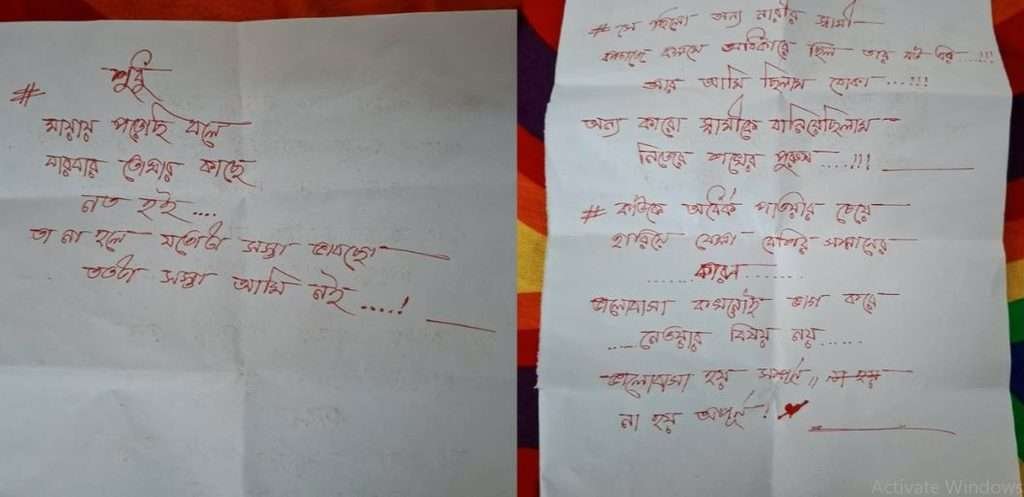 #
মায়ায় পড়েছি বলে
বারবার তোমার কাছে
নত হই ....
তা না হলে যতোটা সস্তা ভাবছো
ততটা সস্তা আমি নই ....!
# সে ছিলো অন্য নারীর স্বামী
অধিকারে ছিল তার ....!!!
আর আমি ছিলাম বোকা ...!!!
অন্য কারো স্বামীকে বানিয়েছিলাম
নিজের শখের পুরুষ ....!!!
# কাউকে অর্ধেক পাওয়ার চেয়ে
হারিয়ে ফেলা বেশির সম্মানের
....... কারন .......
ভালোবাসা কখনোই ভাগ করে
..... নেওয়ার বিষয় নয় .....
ভালোবাসা হয় সম্পূর্ণ,,
না হয় অপূর্ণ!
Activate Windows